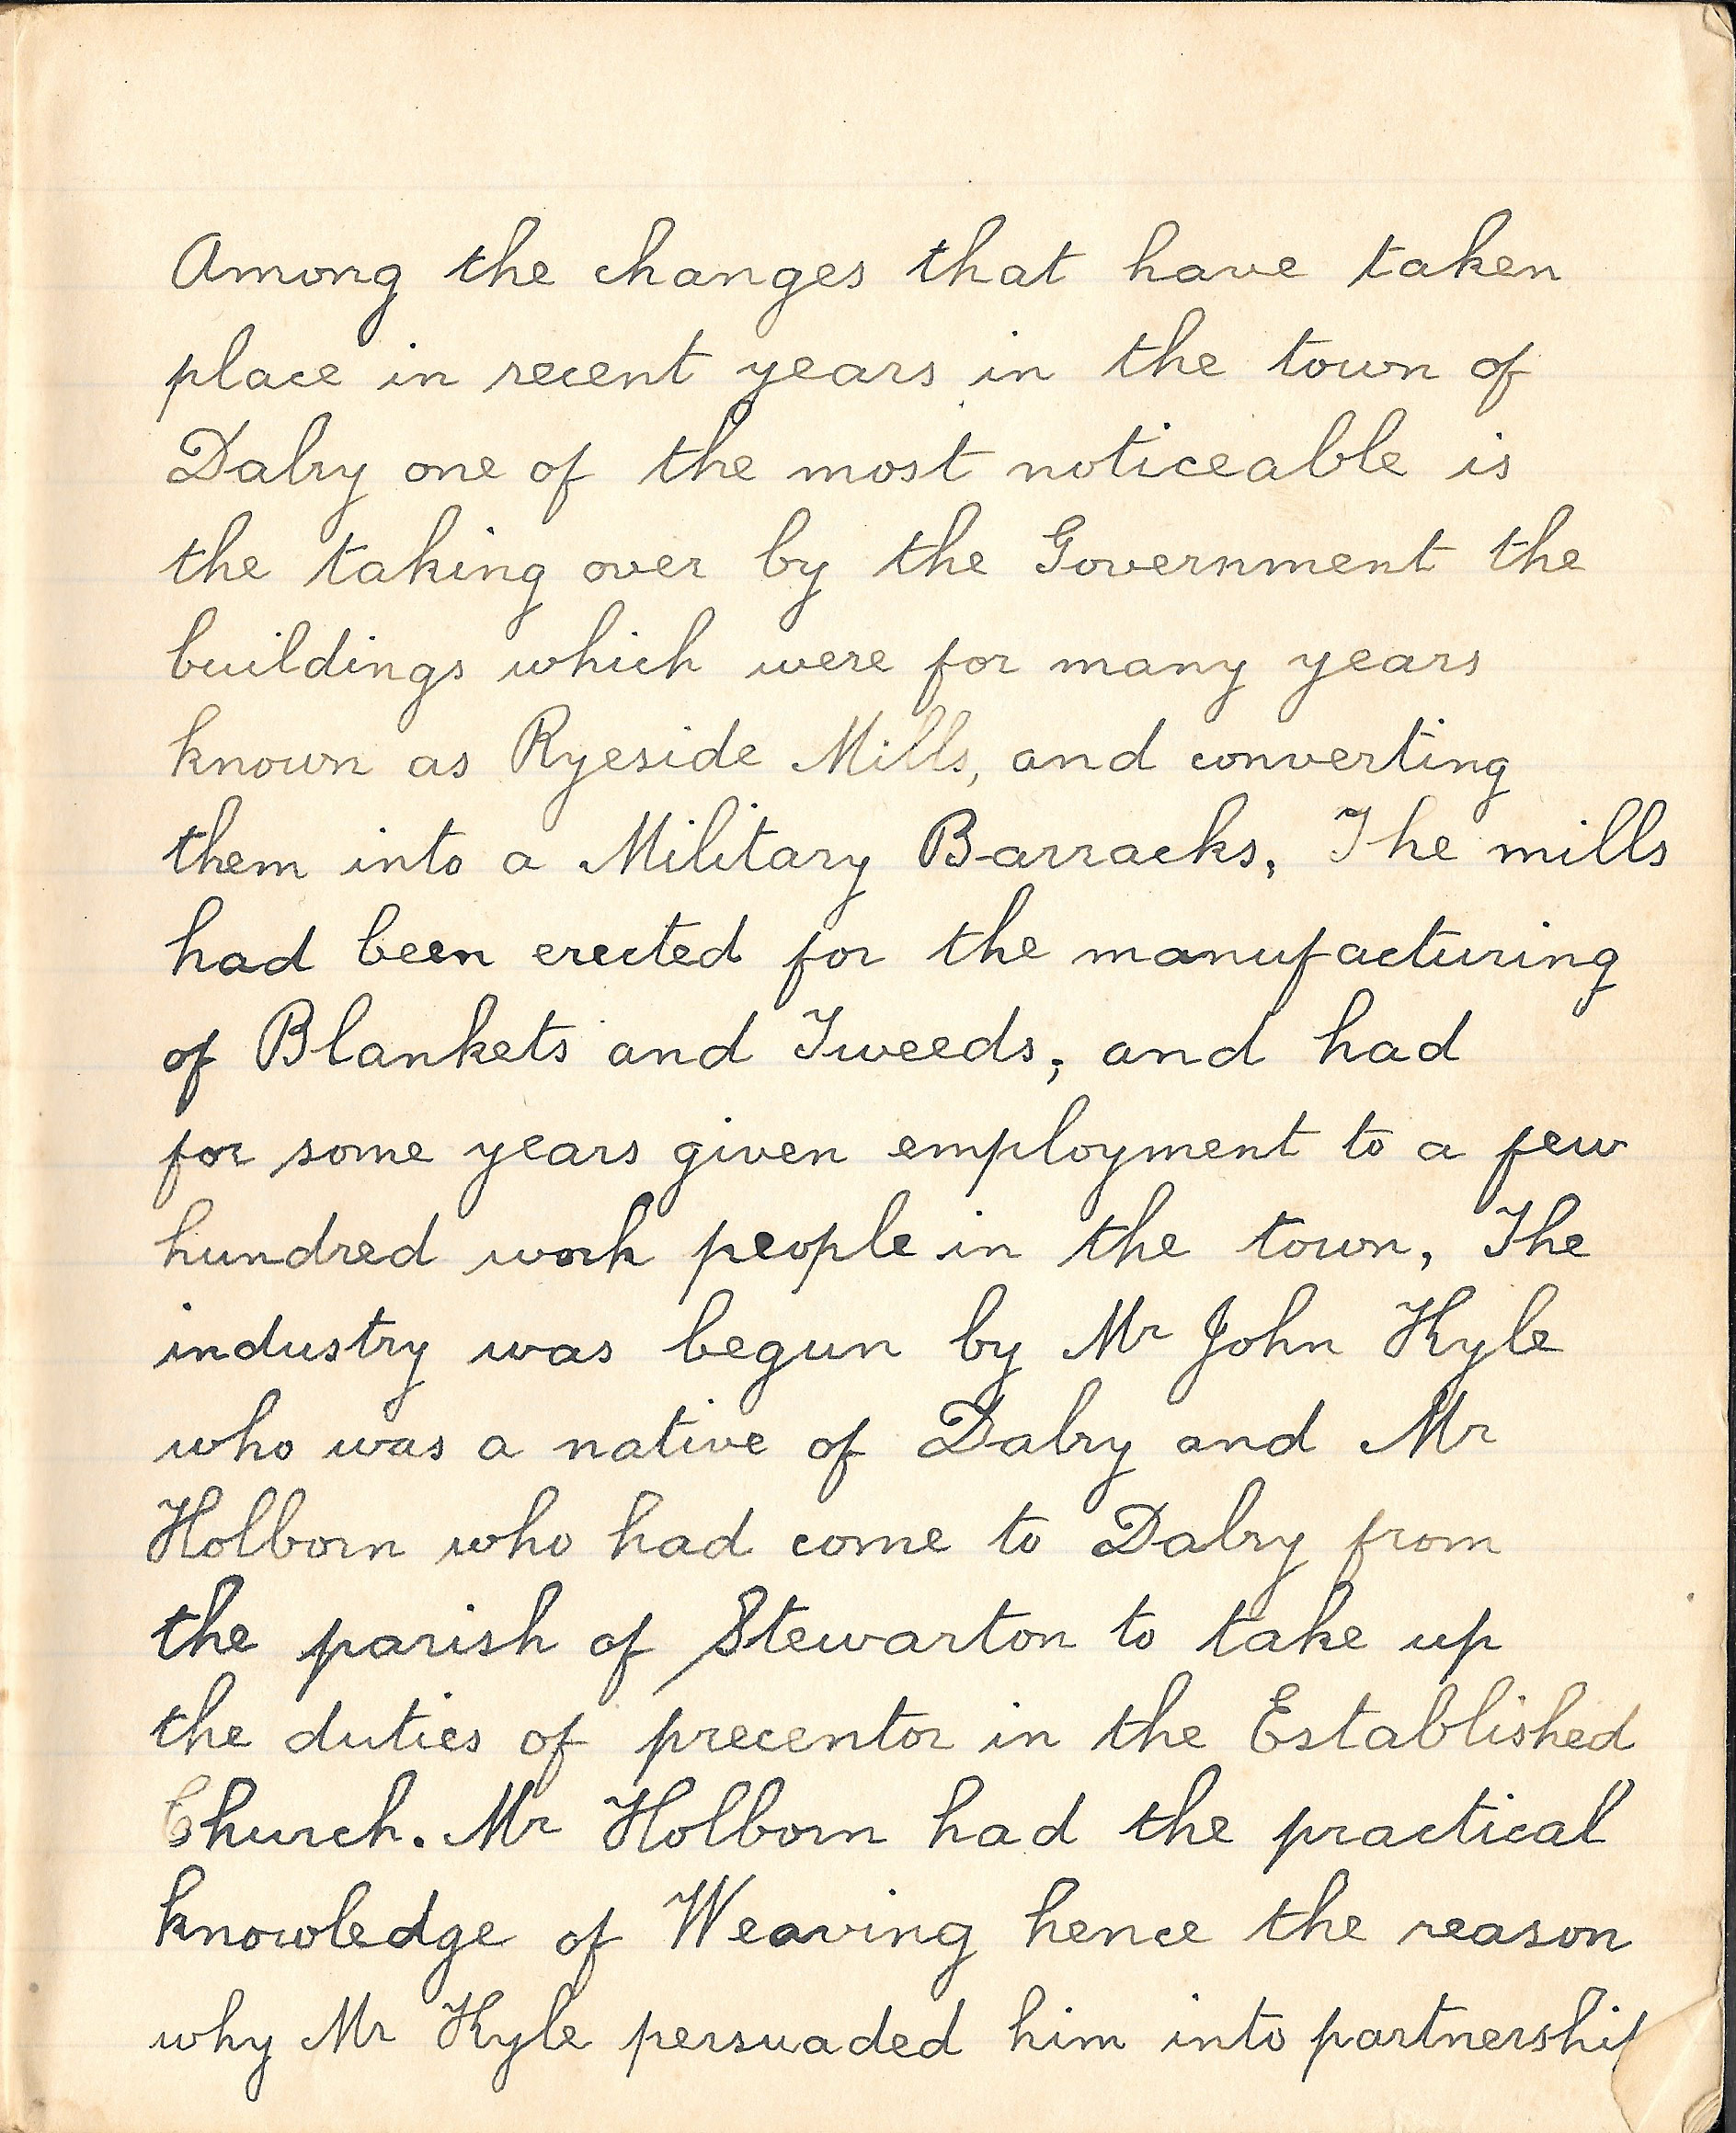 Among the changes that have taken
place in recent years in the town of
Dalry one of the most noticeable is
the taking over by the Government the
buildings which were for many years
known as Ryeside Mills, and converting
them into a Military Barracks, The mills
had been erected for the manufacturing
of Blankets and Tweeds, and had
for some years given employment to a few
hundred work people in the town, The
industry was begun by Mr John Kyle
who was a native of Dalry and Mr
Holborn who had come to Dalry from
the parish of Stewarton to take up
the duties of precentor in the Established
Church. Mr Holborn had the practical
knowledge of Weaving hence the reason
why Mr Kyle persuaded him into partnership